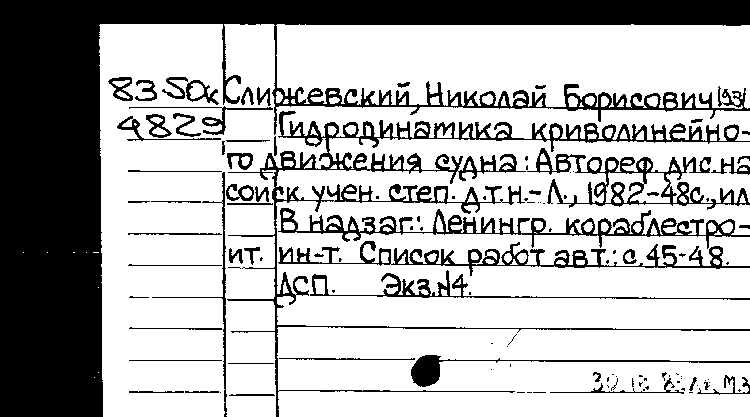 83-50к Слижевский, Николай Борисович, 1931
4829 Гидродинатика криволинейно-
го движения судна: Автореф. дис. на
соиск. учен. степ. д.т.н.-Л., 1982.-48с., ил
В надзаг.: Ленингр. кораблестро-
ит. ин-т. Список работ авт.: с.45-48.
ДСП. Экз.№4.